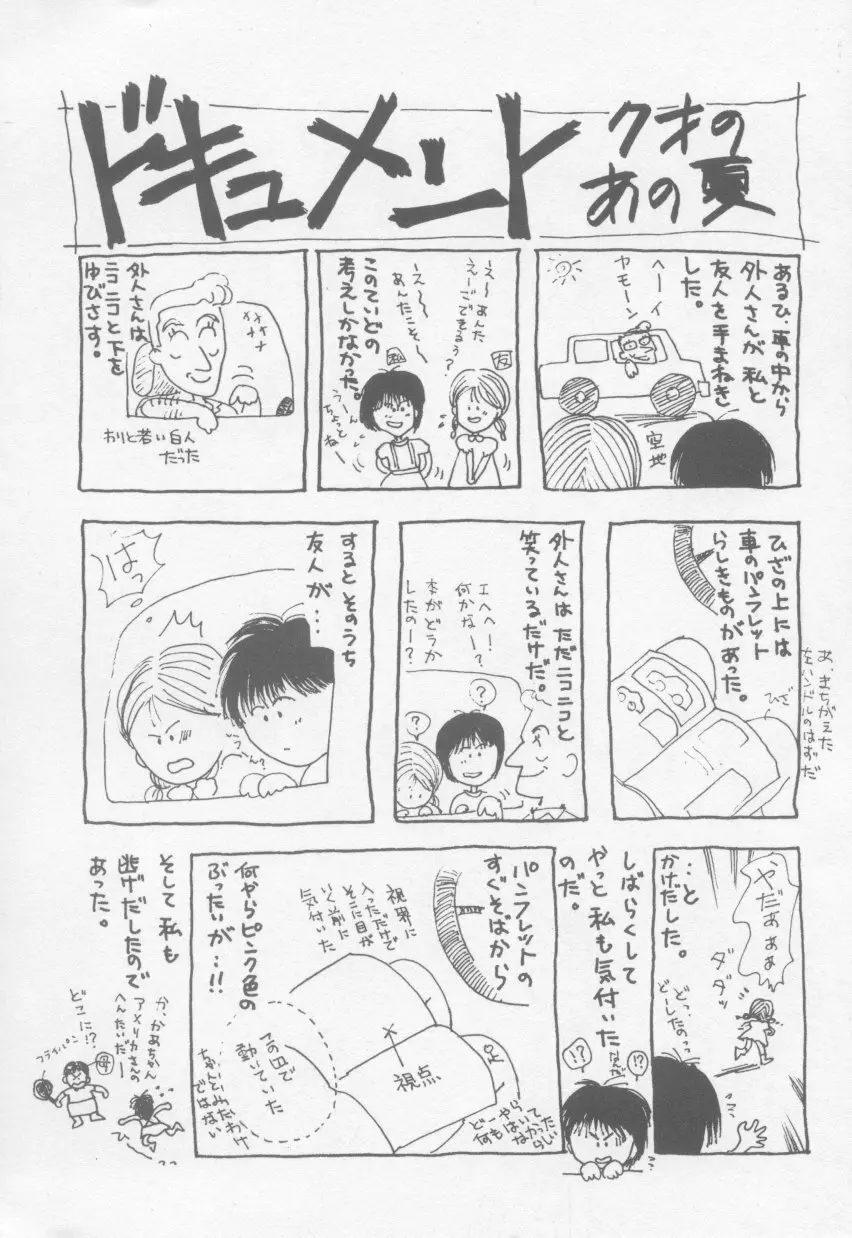 ドキュメント
クオの
あの夏
ある日、車の中から
外人さんが 私と
友人を手まねき
した。
ヘーイ
ヤモーン
空地
えー あんた
えーごできるぅ?
えー
あんたこそー
友
私
このていどの
考えしかなかった。
うーん
ちょっと
ねー
外人さんは
ニコニコと下を
ゆびさす。
わりと若い白人
だった
ひざの上には
車のパンフレット
らしきものがあった。
ひざ
あ、まちがえた
左ハンドルのはずだ
外人さんは ただニコニコと
笑っているだけだ。
エヘヘ!
何かなー?
本がどうか
したのー?
?
?
すると そのうち
友人が…
はっ
うん?
…と
かけだした。
やだぁぁぁ
ダダッ
どっ、
どーしたのっ
しばらくして
やっと 私も気付いた
のだ。
なにが
!?
!?
パンフレットの
すぐそばから
何やらピンク色の
ぶったいが…!!
視界に
入っただけで
そこに目が
いく前に
気付いた
この辺で
動いていた
視点
ちゃんとみたわけ
ではない
どーやら
何もはいて
なかったらしい
そして 私も
逃げだしたので
あった。
か、かあちゃん
アメリカさんの
へんたいだー
どこに!?
フライパン
母